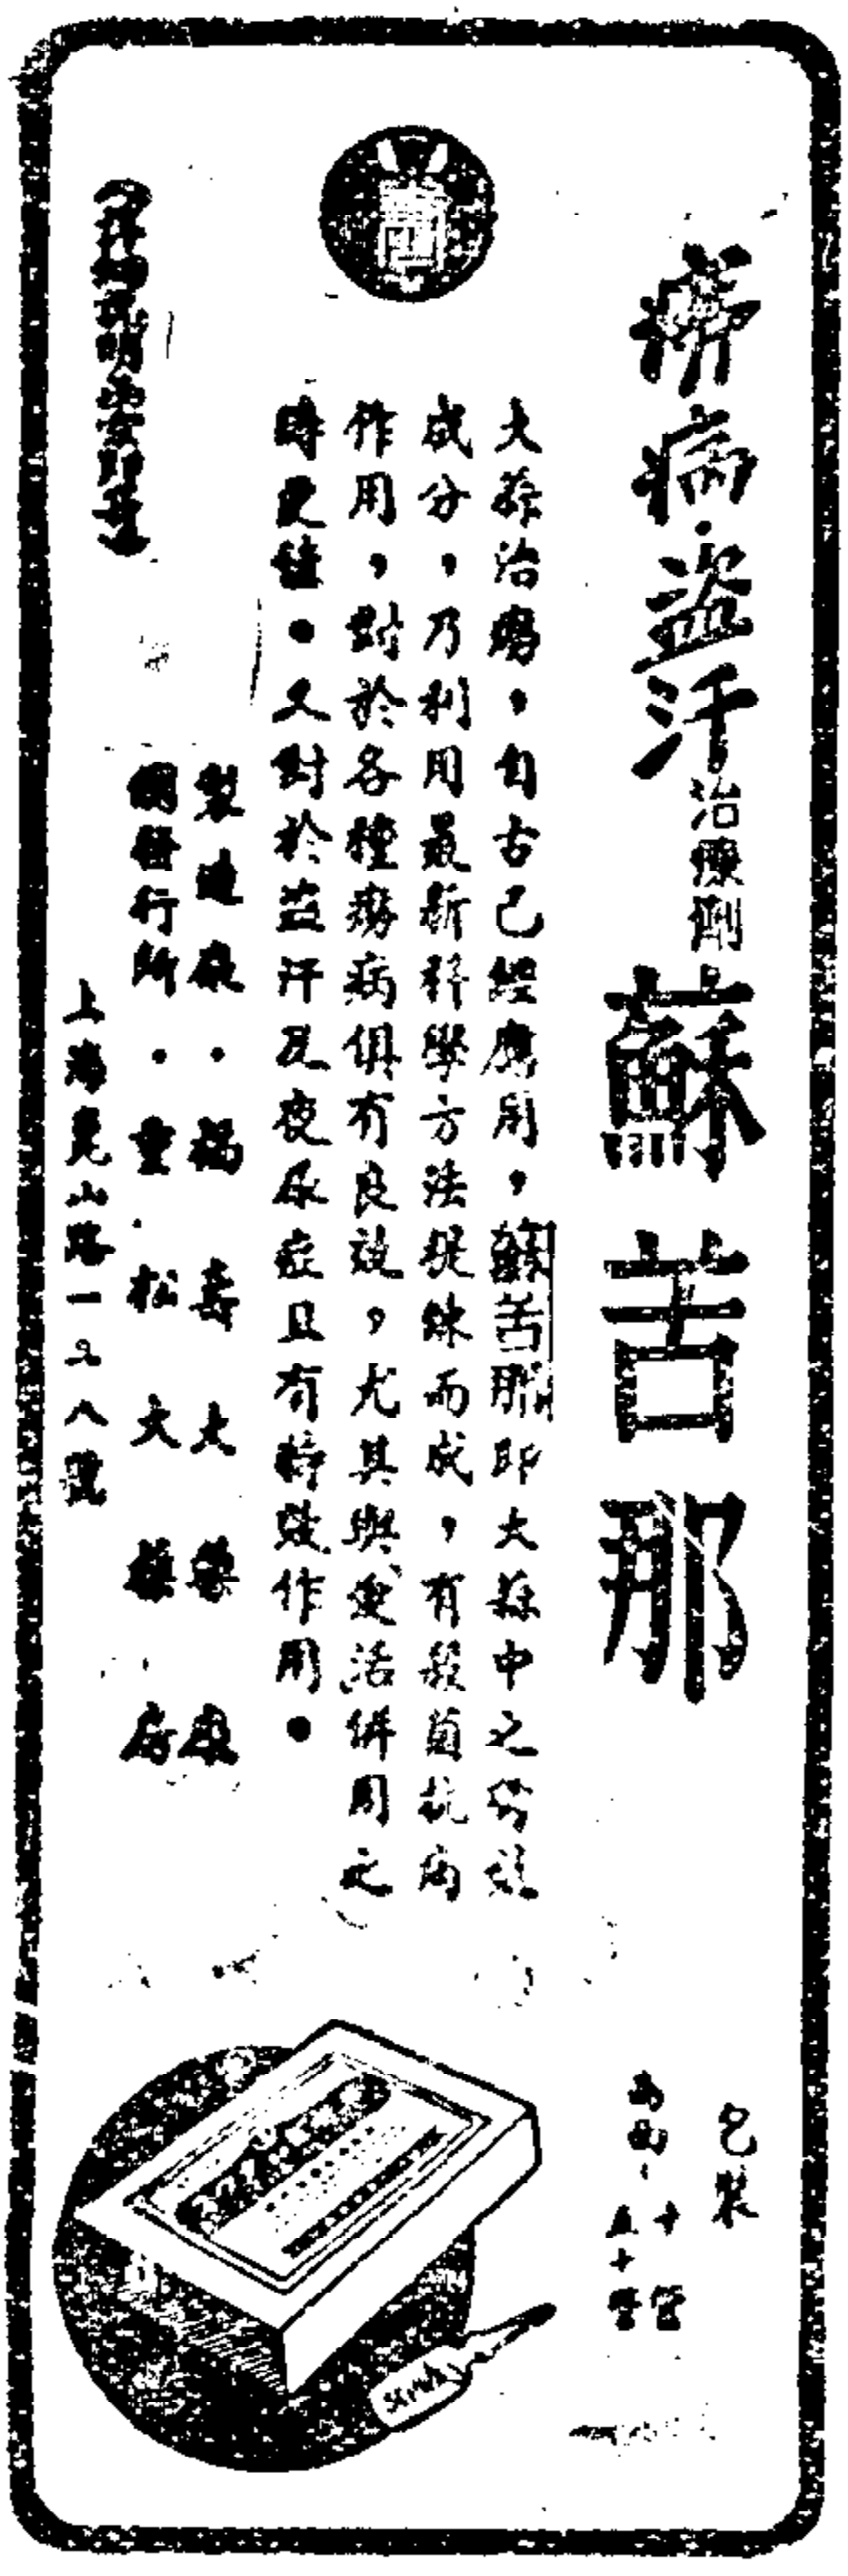 癆病・盗汗治療劑
蘇苦那
大蒜治癆，自古已經應用，蘇苦那即大蒜中之特效
成分，乃利用最新科學方法提煉而成，有殺菌抗病
作用，對於各種癆病俱有良效，尤其與愛活併用之
時更佳●又對於盜汗及夜尿症且有特效作用●
製造廠・福壽大藥廠
發行所・重松大藥房
上海崑山路一二八號
包裝
十管
五十管